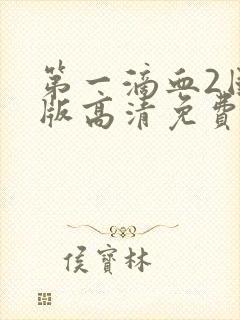 第一滴血2
版高清免費
侯寶林